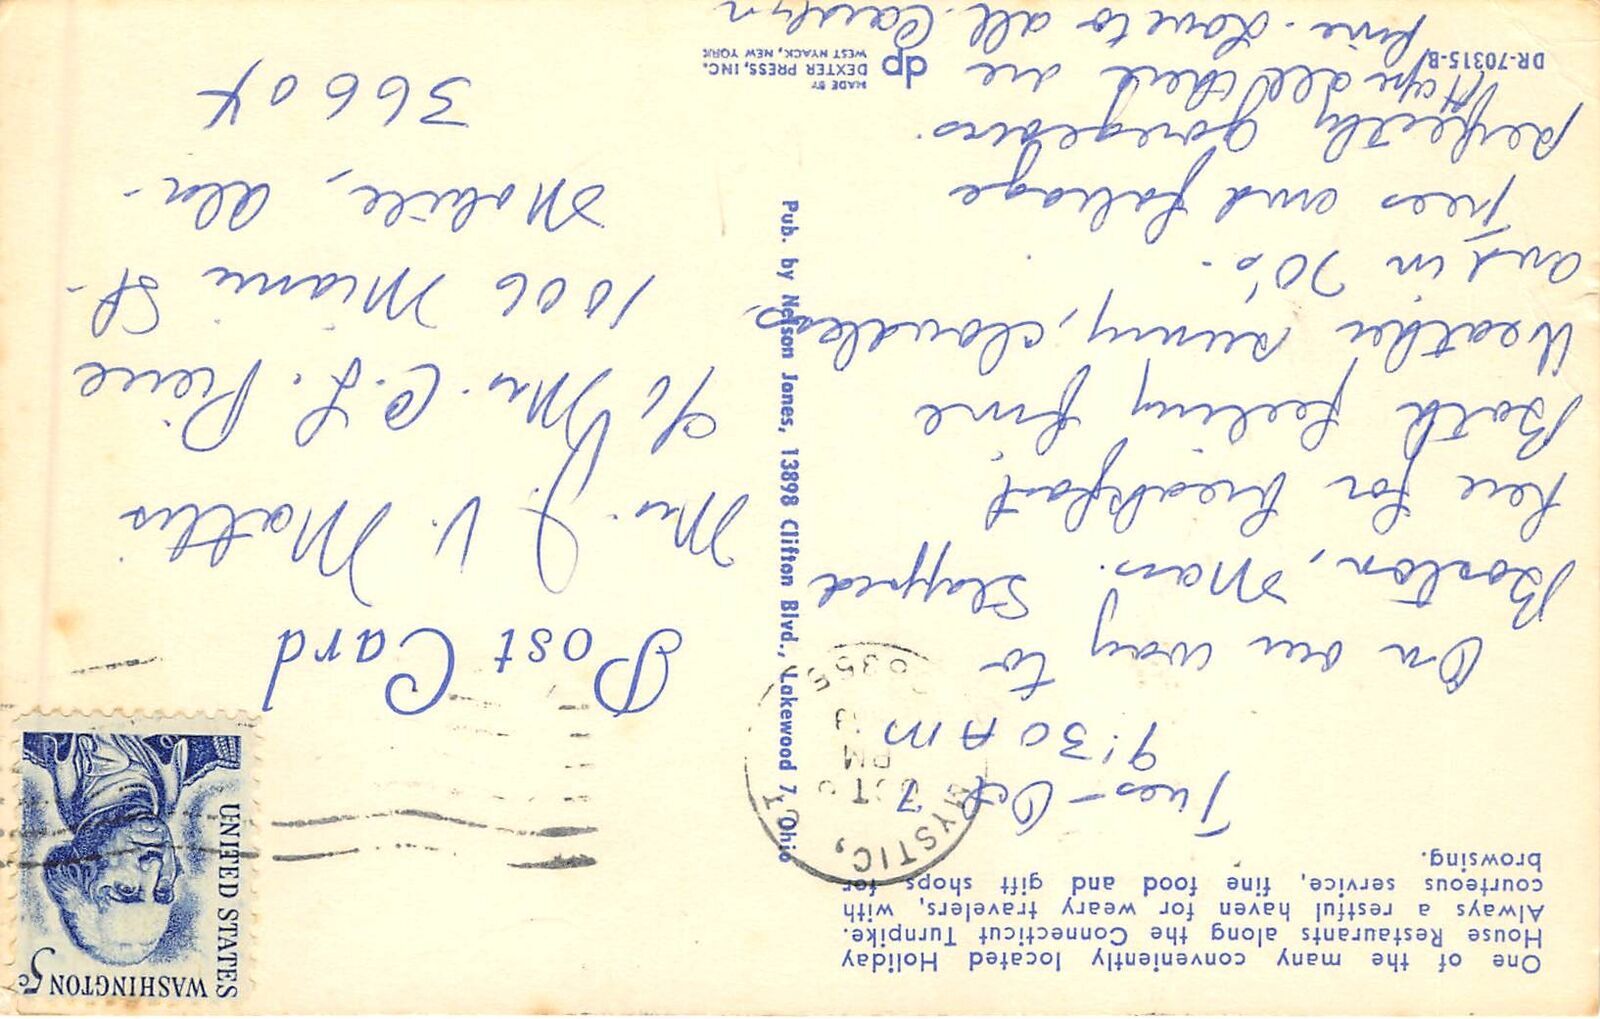 One of the many conveniently located Holiday
House Restaurants along the Connecticut Turnpike.
Always a restful haven for weary travelers, with
courteous service, fine food and gift shops for
browsing.
Tues - Oct 7
9:30 AM
On our way to
Boston, Mass. Stopped
here for breakfast.
Both feeling fine
Weather sunny, cloudless
and in 70's.
Trees and foliage
perfectly goregeous.
Hope all there are
fine. Love to all. Carolyn
DR-70315-B
dp
MADE BY
DEXTER PRESS, INC.
WEST NYACK, NEW YORK
Pub. by Nelson Jones, 13898 Clifton Blvd., Lakewood 7, Ohio
MYSTIC, CT
OCT
PM
06355
WASHINGTON 5c
UNITED STATES
Post Card
Mrs. J. V. Mattis
c/o Mrs. C. L. Pierce
1006 Miami St.
Mobile, Ala.
36604